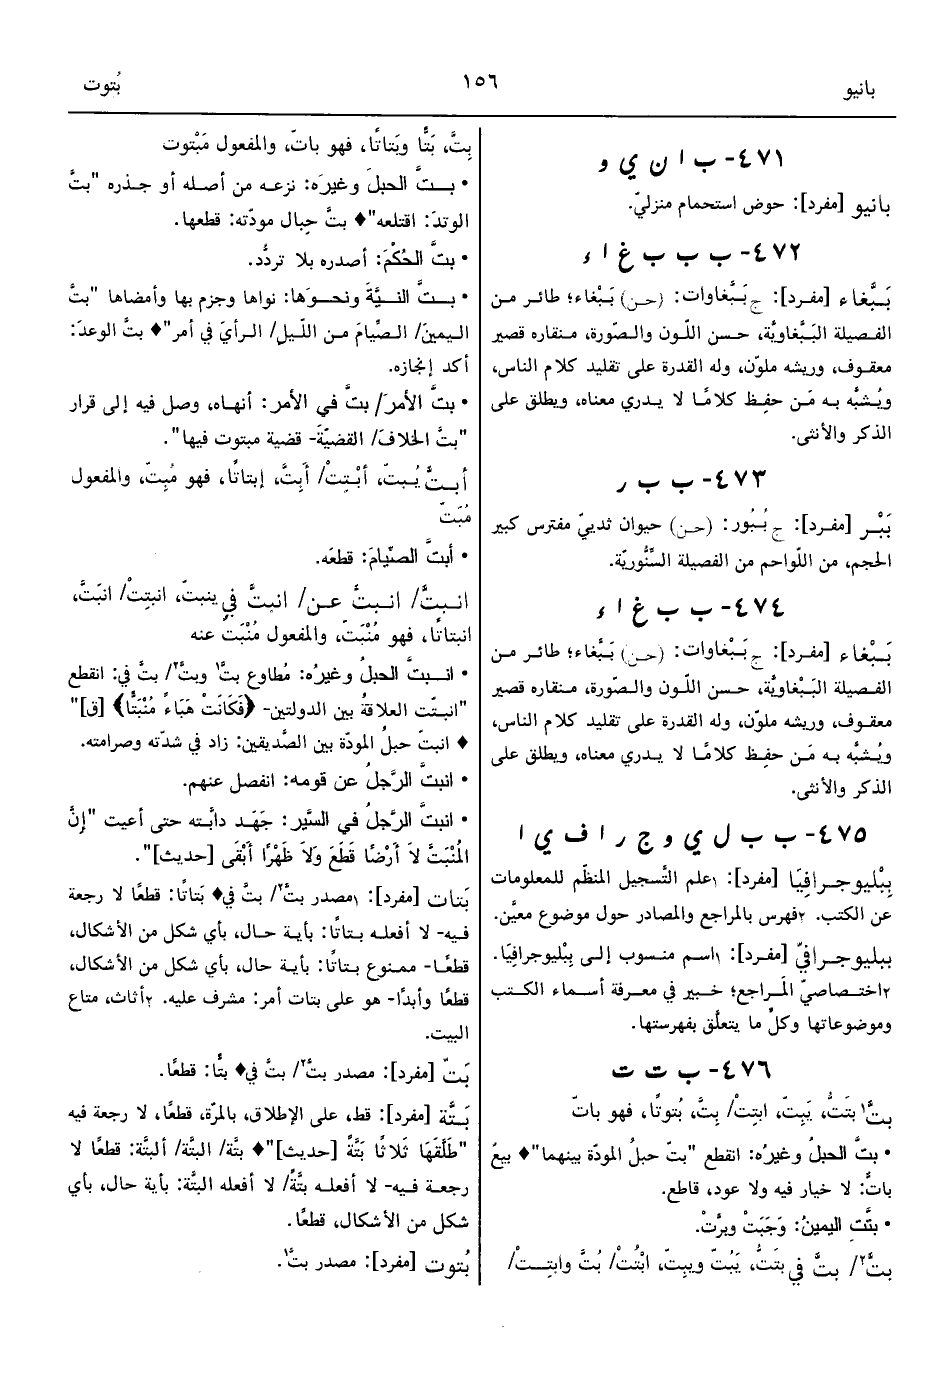 بانيو
١٥٦
بُتوت
٤٧١- ب ا ن ي و
بانيو [مفرد]: حوض استحمام منزليّ.
٤٧٢- ب ب ب غ ا ء
بَبَّغاء [مفرد]: ج بَبَّغاوات: (حن) بَبْغاء؛ طائر من
الفصيلة البَبَّغاويَّة، حسن اللّون والصّورة، منقاره قصير
معقوف، وريشه ملوّن، وله القدرة على تقليد كلام الناس،
ويُشبَّه به مَن حفِظ كلامًا لا يدري معناه، ويطلق على
الذكر والأنثى.
٤٧٣- ب ب ر
بَبْر [مفرد]: ج بُبُور: (حن) حيوان ثدييّ مفترس كبير
الحجم، من اللّواحم من الفصيلة السِّنَّوريَّة.
٤٧٤- ب ب غ ا ء
بَبْغاء [مفرد]: ج بَبْغاوات: (حن) بَبَّغاء؛ طائر من
الفصيلة البَبَّغاويَّة، حسن اللّون والصّورة، منقاره قصير
معقوف، وريشه ملوّن، وله القدرة على تقليد كلام الناس،
ويُشبَّه به مَن حفِظ كلامًا لا يدري معناه، ويطلق على
الذكر والأنثى.
٤٧٥- ب ب ل ي و ج ر ا ف ي ا
بِبْليوجرافِيَا [مفرد]: ١علم التَّسجيل المنظّم للمعلومات
عن الكتب. ٢فهرس بالمراجع والمصادر حول موضوع معيَّن.
ببليوجرافيّ [مفرد]: ١اسم منسوب إلى بِبْليوجرافِيَا.
٢اختصاصيّ المَراجع؛ خبير في معرفة أسماء الكتب
وموضوعاتها وكلّ ما يتعلَّق بفهرستها.
٤٧٦- ب ت ت
بتَّ١ بَتَتُّ، يَبِتّ، ابتِتْ/ بِتَّ، بُتوتًا، فهو باتّ
• بتَّ الحبلُ وغيرُه: انقطع "بتّ حبلُ المودّة بينهما"♦ بيعُ
باتٌّ: لا خيار فيه ولا عود، قاطع.
• بتَّت اليمينُ: وَجَبَتْ وبرَّتْ.
بتَّ٢/ بتَّ في بَتَتُّ، يَبُتّ ويبِتّ، ابْتُتْ/ بُتَّ وابتِتْ/
بِتَّ، بَتًّا وبَتاتًا، فهو باتّ، والمفعول مَبْتوت
• بتَّ الحبلَ وغيرَه: نزعه من أصله أو جذره "بتَّ
الوتدَ: اقتلعه"♦ بتَّ حِبال مودّته: قطعها.
• بتَّ الحُكْمَ: أصدره بلا تردُّد.
• بتَّ النيَّةَ ونحوَها: نواها وجزم بها وأمضاها "بتَّ
اليمينَ/ الصِّيامَ من اللّيل/ الرأيَ في أمر"♦ بتَّ الوعدَ:
أكد إنجازه.
• بتَّ الأمرَ/ بتَّ في الأمر: أنهاه، وصل فيه إلى قرار
"بتَّ الخلافَ/ القضيّةَ- قضية مبتوت فيها".
أبتَّ يُبتّ، أبْتِتْ/ أَبِتَّ، إبتاتًا، فهو مُبِتّ، والمفعول
مُبَتّ
• أبتَّ الصِّيامَ: قطعَه.
انبتَّ/ انبتَّ عن/ انبتَّ في ينبتّ، انبتِتْ/ انبَتَّ،
انبتاتًا، فهو مُنْبَتّ، والمفعول مُنْبَتّ عنه
• انبتَّ الحبلُ وغيرُه: مُطاوع بتَّ١ وبتَّ٢/ بتَّ في: انقطع
"انبتّت العلاقة بين الدولتين- ﴿فَكَانَتْ هَبَاءً مُنْبَتًّا﴾ [ق]"
♦ انبتّ حبلُ المودّة بين الصَّديقين: زاد في شدّته وصرامته.
• انبتَّ الرَّجلُ عن قومه: انفصل عنهم.
• انبتَّ الرَّجلُ في السَّير: جَهَد دابَّته حتى أعيت "إِنَّ
المُنْبَتَّ لاَ أَرْضًا قَطَعَ وَلاَ ظَهْرًا أَبْقَى [حديث]".
بَتات [مفرد]: ١مصدر بتَّ٢/ بتَّ في♦ بَتاتًا: قطعًا لا رجعة
فيه- لا أفعله بتاتًا: بأية حال، بأي شكل من الأشكال،
قطعًا- ممنوع بتاتًا: بأية حال، بأي شكل من الأشكال،
قطعًا وأبدًا- هو على بتات أمر: مشرف عليه. ٢أثاث، متاع
البيت.
بَتّ [مفرد]: مصدر بتَّ٢/ بتَّ في♦ بتًّا: قطعًا.
بَتَّة [مفرد]: قط، على الإطلاق، بالمرّة، قطعًا، لا رجعة فيه
"طَلَّقَهَا ثَلاَثًا بَتَّةً [حديث]"♦ بتَّة/ البتَّة/ ألبتَّة: قطعًا لا
رجعة فيه- لا أفعله بتَّةً/ لا أفعله البتَّة: بأية حال، بأي
شكل من الأشكال، قطعًا.
بُتوت [مفرد]: مصدر بتَّ١.